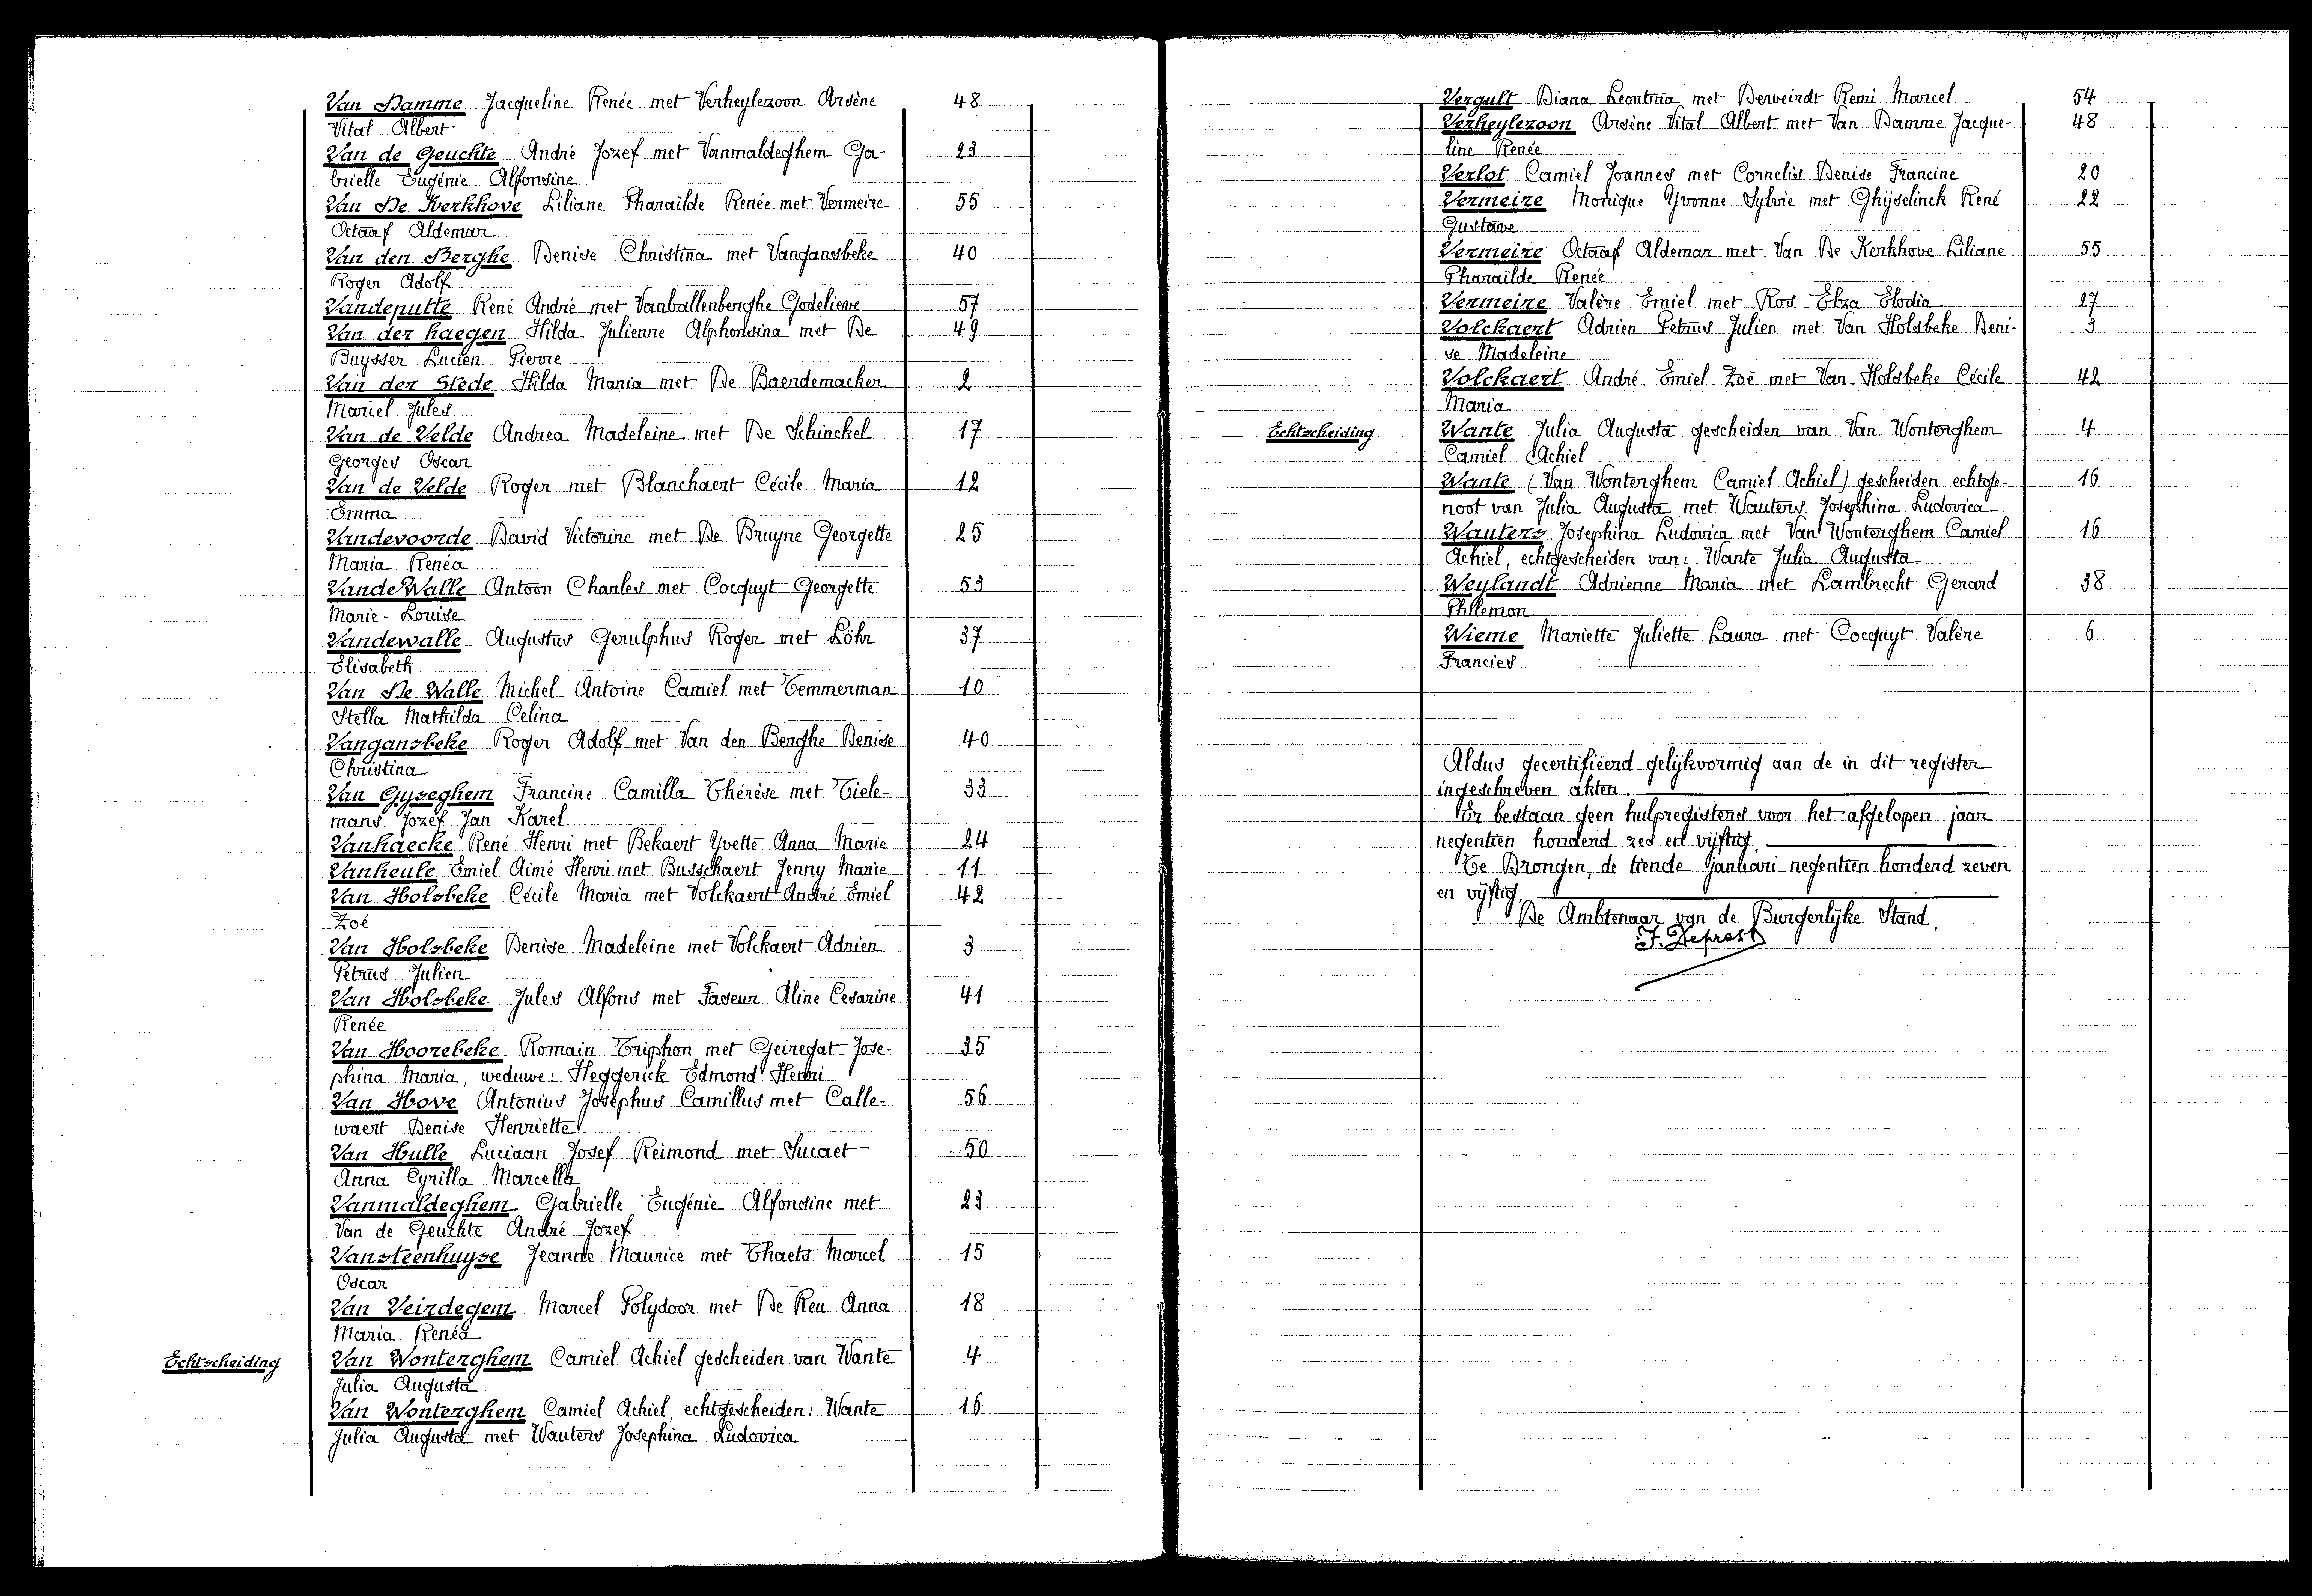 Van Damme Jacqueline Renée met Verheylezoon Arsène 48
Vital Albert
Van de Geuchte André Jozef met Vanmaldeghem Ga- 23
brielle Eugénie Alfonsine
Van De Kerkhove Liliane Pharaïlde Renée met Vermeire 55
Octaaf Aldemar
Van den Berghe Denise Christina met Vangansbeke 40
Roger Adolf
Vandeputte René André met Vanballenberghe Godelieve 57
Van der haegen Hilda Julienne Alphonsina met De 49
Buysser Lucien Pierre
Van der Stede Hilda Maria met De Baerdemacker 2
Marcel Jules
Van de Velde Andrea Madeleine met De Schinckel 17
Georges Oscar
Van de Velde Roger met Blanchaert Cécile Maria 12
Emma
Vandevoorde David Victorine met De Bruyne Georgette 25
Maria Renéa
VandeWalle Antoon Charles met Cocquyt Georgette 53
Marie-Louise
Vandewalle Augustus Gerulphus Roger met Löhr 37
Elisabeth
Van De Walle Michel Antoine Camiel met Temmerman 10
Stella Mathilda Celina
Vangansbeke Roger Adolf met Van den Berghe Denise 40
Christina
Van Gyseghem Francine Camilla Thérèse met Tiele- 33
mans Jozef Jan Karel
Vanhaecke René Henri met Bekaert Yvette Anna Marie 24
Vanheule Emiel Aimé Henri met Busschaert Jenny Marie 11
Van Holsbeke Cécile Maria met Volckaert André Emiel 42
Zoé
Van Holsbeke Denise Madeleine met Volckaert Adrien 3
Petrus Julien
Van Holsbeke Jules Alfons met Faseur Aline Cesarine 41
Renée
Van Hoorebeke Romain Triphon met Geiregat Jose- 35
phina Maria, weduwe: Heggerick Edmond Henri
Van Hove Antonius Josephus Camillus met Calle- 56
waert Denise Henriette
Van Hulle Luciaan Josef Reimond met Sucaet 50
Anna Cyrilla Marcella
Vanmaldeghem Gabrielle Eugénie Alfonsine met 23
Van de Geuchte André Jozef
Vansteenhuyse Jeanne Maurice met Thaets Marcel 15
Oscar
Van Veirdegem Marcel Polydoor met De Reu Anna 18
Maria Renéa
Echtscheiding Van Wonterghem Camiel Achiel gescheiden van Wante 4
Julia Augusta
Van Wonterghem Camiel Achiel, echtgescheiden: Wante 16
Julia Augusta met Wauters Josephina Ludovica
Vergult Diana Leontina met Derveirdt Remi Marcel 54
Verheylezoon Arsène Vital Albert met Van Damme Jacque- 48
line Renée
Verlot Camiel Joannes met Cornelis Denise Francine 20
Vermeire Monique Yvonne Sylvie met Ghijselinck René 22
Gustave
Vermeire Octaaf Aldemar met Van De Kerkhove Liliane 55
Pharaïlde Renée
Vermeire Valère Emiel met Ros Elza Elodia 27
Volckaert Adrien Petrus Julien met Van Holsbeke Deni- 3
se Madeleine
Volckaert André Emiel Zoë met Van Holsbeke Cécile 42
Maria
Echtscheiding Wante Julia Augusta gescheiden van Van Wonterghem 4
Camiel Achiel
Wante (Van Wonterghem Camiel Achiel) gescheiden echtge- 16
noot van Julia Augusta met Wauters Josephina Ludovica
Wauters Josephina Ludovica met Van Wonterghem Camiel 16
Achiel, echtgescheiden van: Wante Julia Augusta
Weylandt Adrienne Maria met Lambrecht Gerard 38
Philemon
Wieme Mariette Juliette Laura met Cocquyt Valère 6
Francies
Aldus gecertifiëerd gelijkvormig aan de in dit register
ingeschreven akten.
Er bestaan geen hulpregisters voor het afgelopen jaar
negentien honderd zes en vijftig.
Te Drongen, de tiende januari negentien honderd zeven
en vijftig.
De Ambtenaar van de Burgerlijke Stand,
J. Deprest